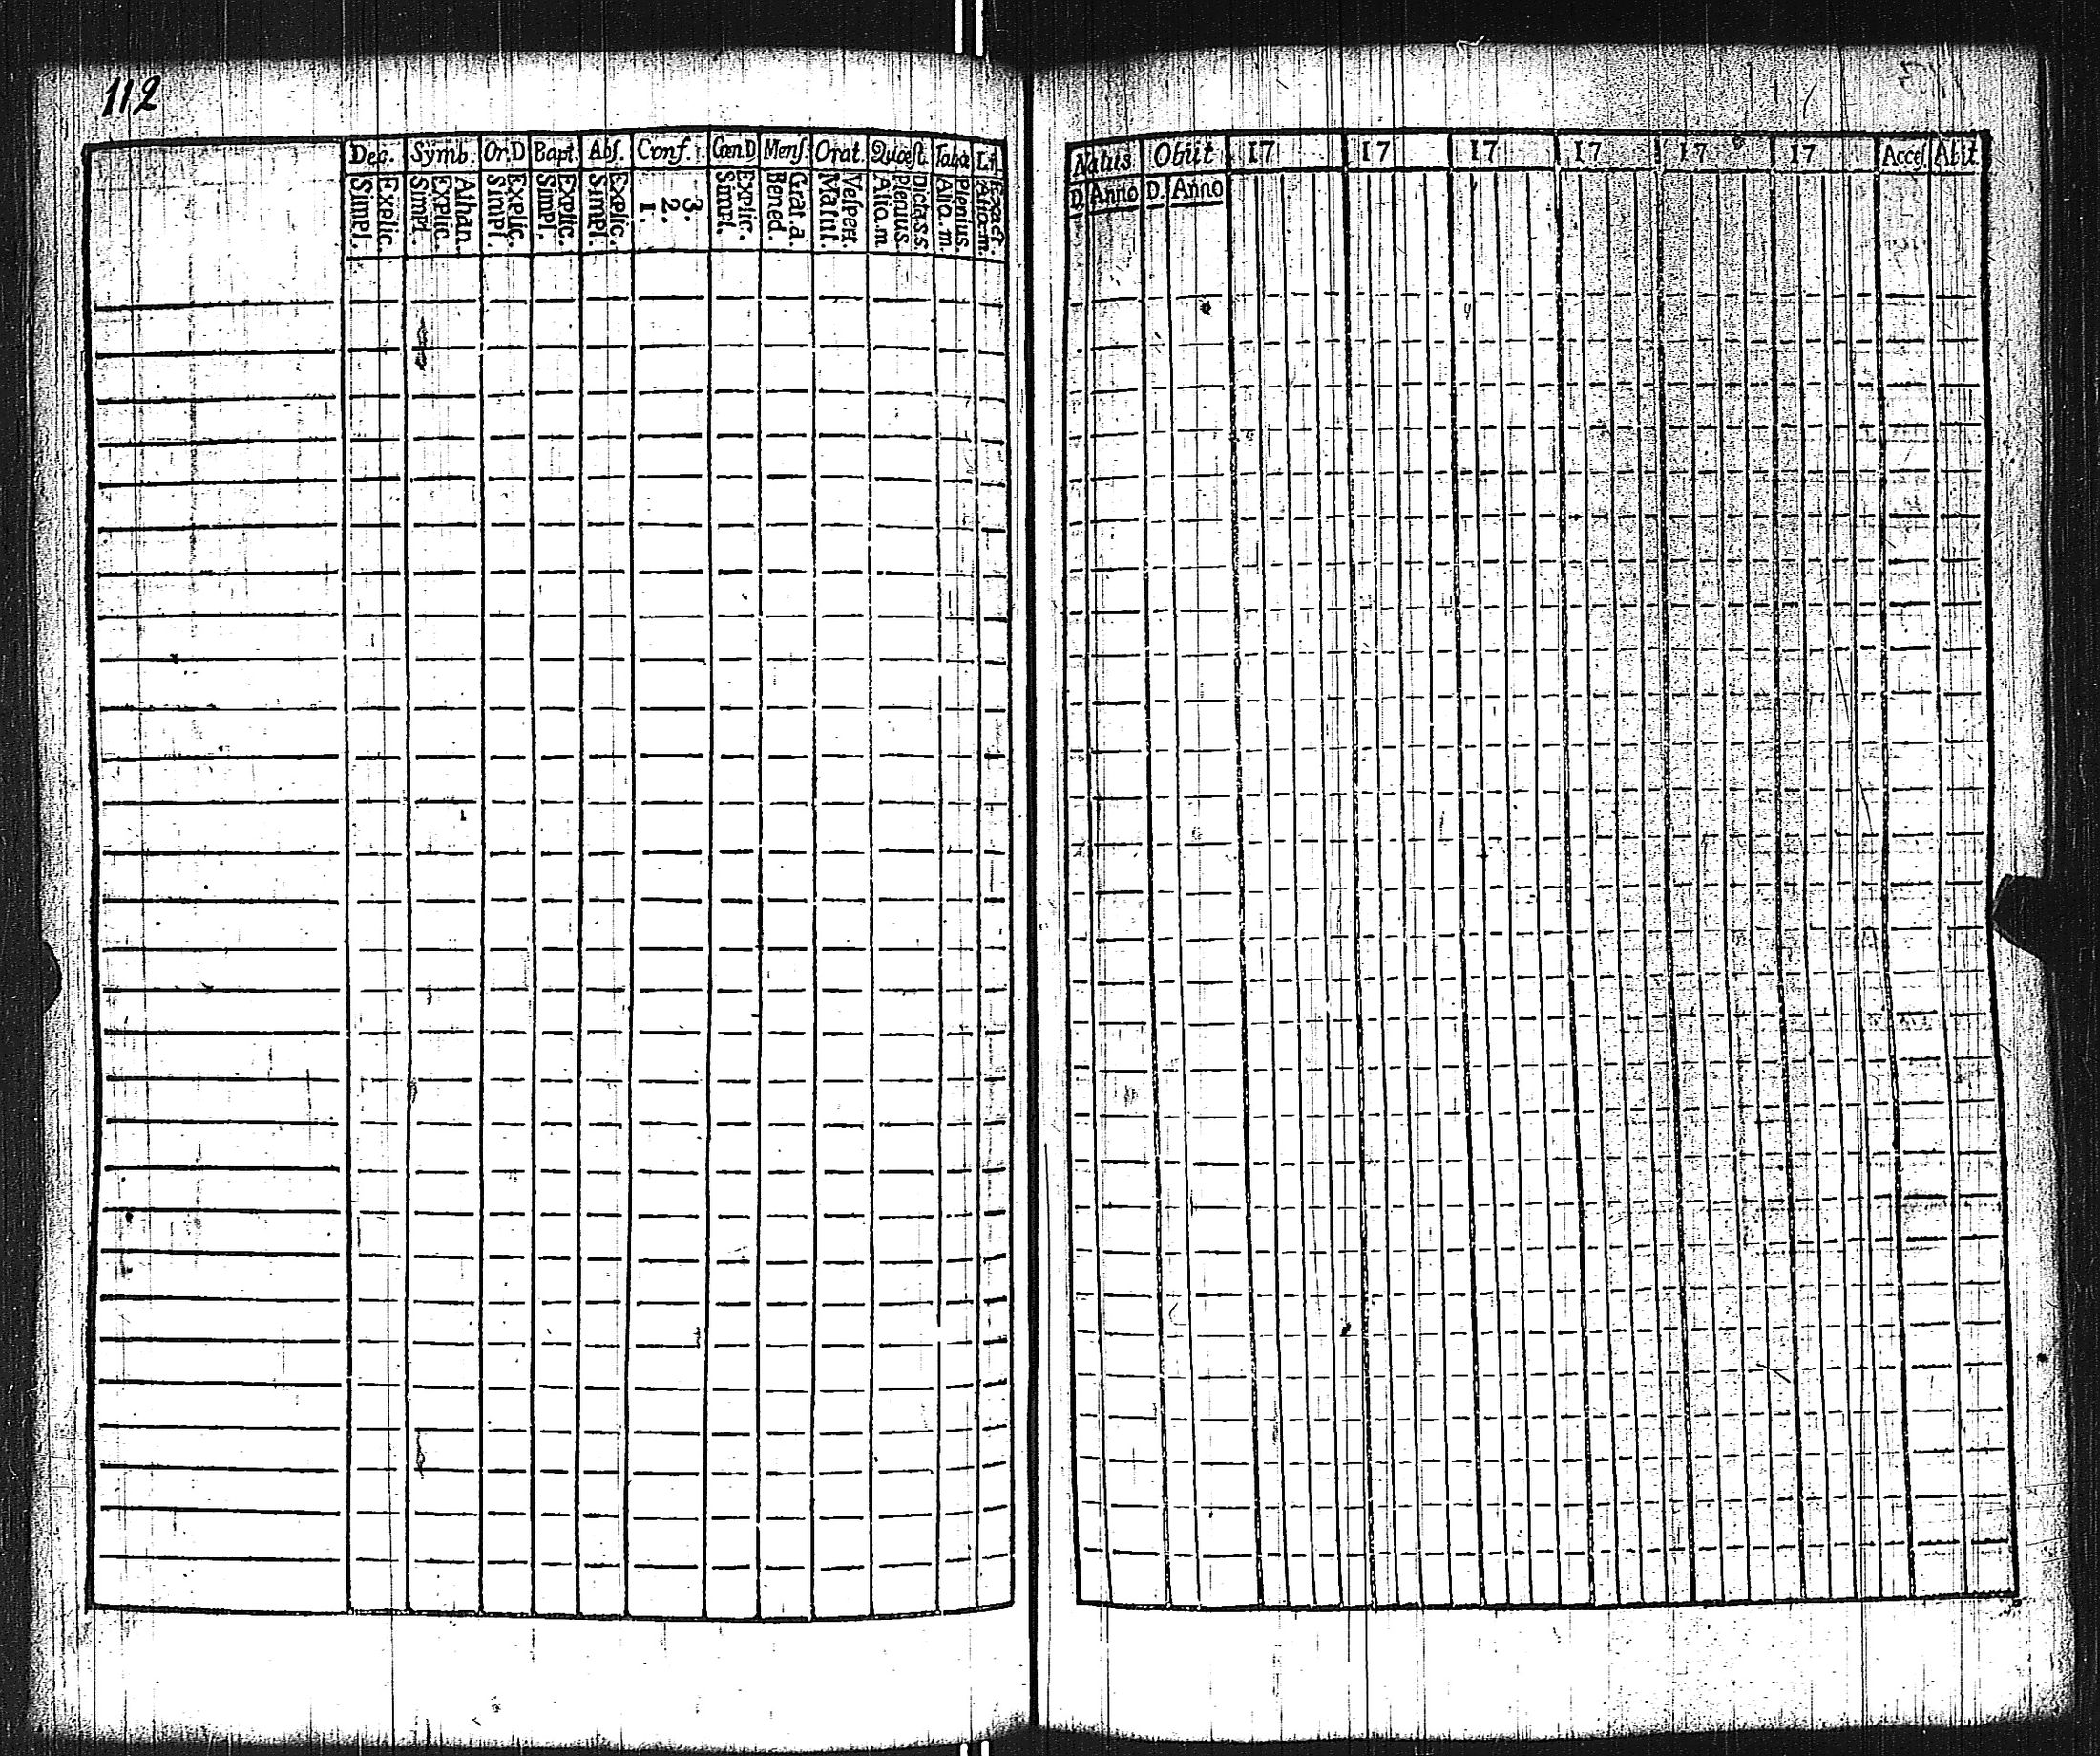 112
Dec. Symb. Or.D Bapt. Abſ. Conf. Cœn.D Menſ. Orat. Quœſt. Taba
Explic. Simpl.
Athan. Explic. Simpl.
Explic. Simpl.
Explic. Simpl.
Explic. Simpl.
3. 2. 1.
Explic. Simpl.
Grat.a. Bened.
Veſpert. Matut.
Dicta.s.s. Plenius. Aliq.m
Plenius. Aliq.m
Exact. Aliq.m.
Natus Obiit 17 17 17 17 17 17 Acceſ. Abiit
D. Anno D. Anno